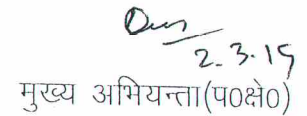 2.3.15
मुख्य अभियन्ता(प०क्षे०)